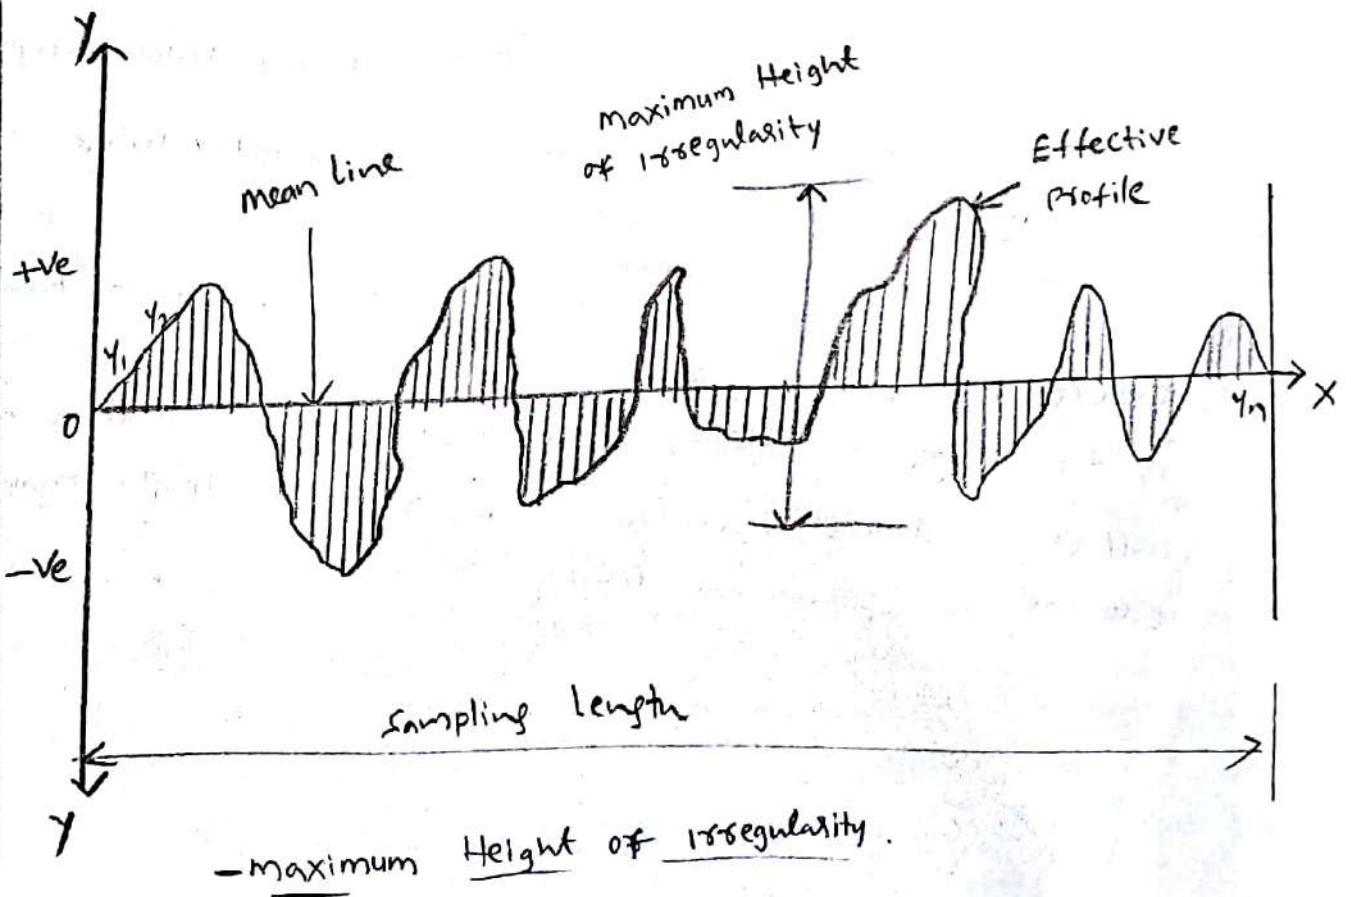 Y
maximum Height
of Irregularity
Effective
profile
mean line
+ve
Y₁
Y₂
0
Yₙ
X
-ve
Sampling length
Y
- maximum Height of irregularity.